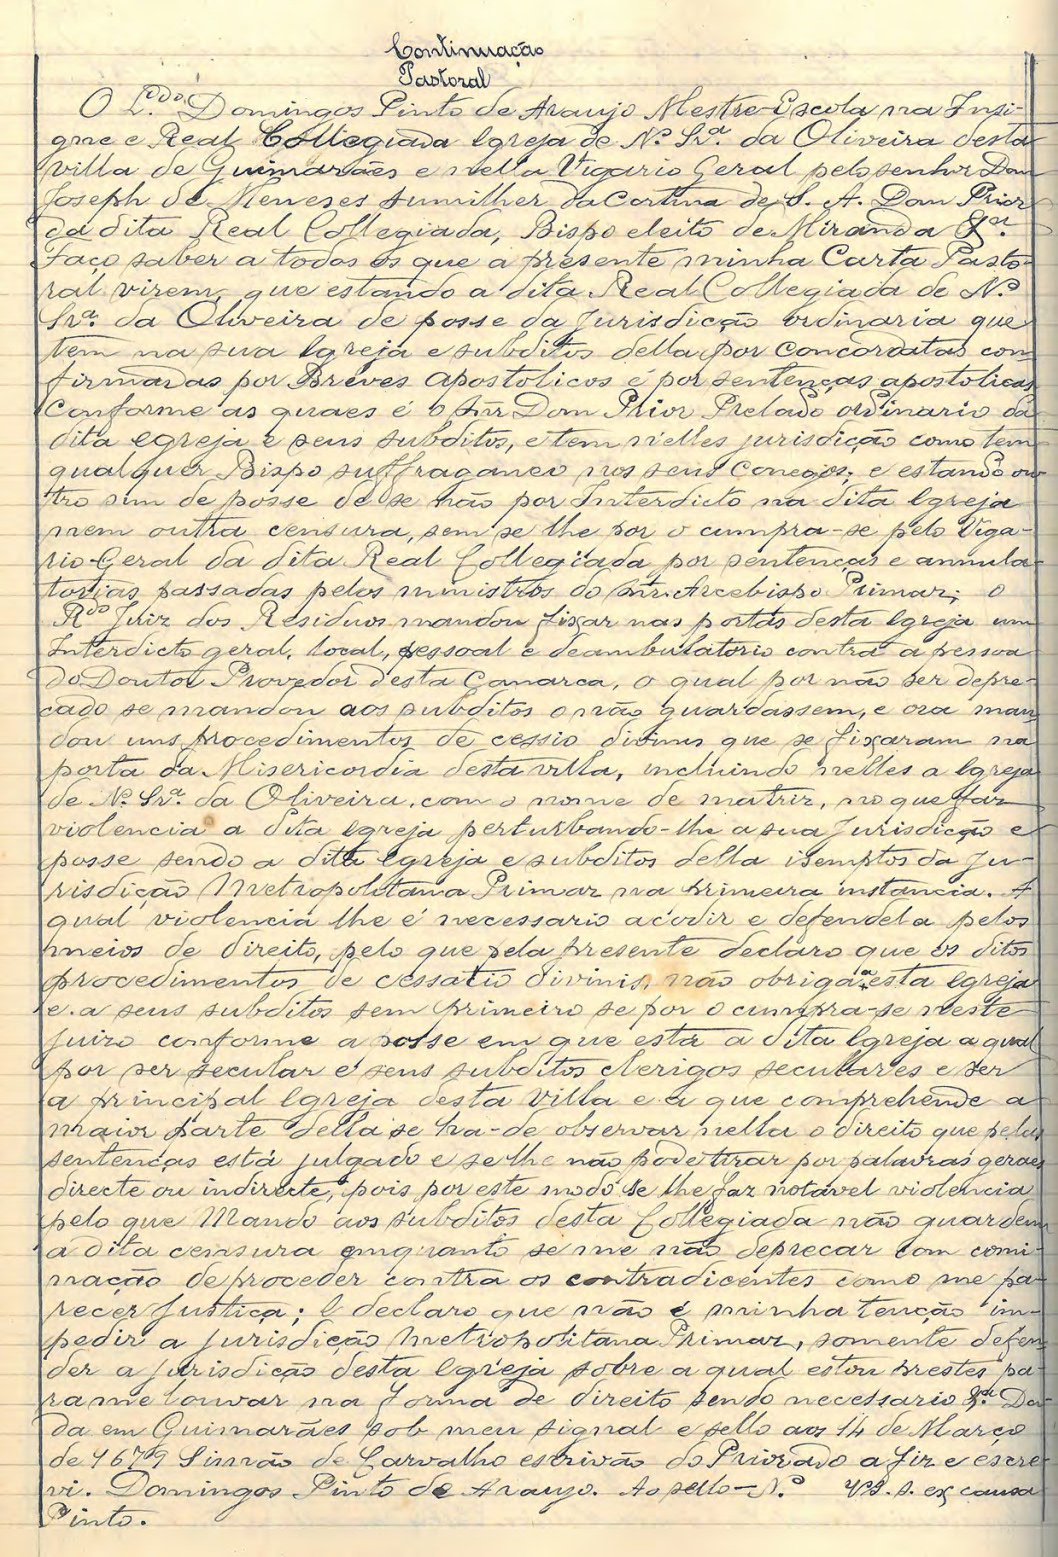 Continuação
Pastoral
O L.do Domingos Pinto de Araujo Mestre-Escola na Insi-
gne e Real Collegiada Igreja de N.ª Sr.ª da Oliveira desta
villa de Guimarães e nella Vigario Geral pelo senhor Dom
Joseph de Menezes sumilher da Cortina de S. A. Dom Prior
da dita Real Collegiada, Bispo eleito de Miranda &.ª
Faço saber a todos os que a presente minha Carta Pasto-
ral virem, que estando a dita Real Collegiada de N.ª
Sr.ª da Oliveira de posse da Jurisdicção ordinaria que
tem na sua Igreja e subditos della por concordatas con
firmadas por Breves Apostolicos e por sentenças apostolicas
Conforme as quaes é o Snr Dom Prior Prelado ordinario da
dita egreja e seus subditos, e tem n'elles jurisdicção como tem
qualquer Bispo suffraganeo nos seus Conegos; e estando ou
tro sim de posse de se não por Interdicto na dita Igreja
nem outra censura, sem se lhe por o cumpra-se pelo Viga-
rio-Geral da dita Real Collegiada por sentenças e annula-
torias passadas pelos ministros do Snr. Arcebispo Primaz; o
R.do Juiz dos Residuos mandou fixar nas portas desta Igreja um
Interdicto geral, local, pessoal e deambulatorio contra a pessoa
do Doutor Provedor desta Camarca, o qual por não ser depre-
cado se mandou aos subditos o não guardassem, e ora man
dou uns procedimentos de cessio divinis que se fixaram na
porta da Misericordia desta villa, incluindo nelles a Igreja
de N.ª Sr.ª da Oliveira, com o nome de matriz, no que faz
violencia a dita egreja perturbando-lhe a sua Jurisdicção e
posse sendo a dita Igreja e subditos della isemptos da Ju-
risdição Metropolitana Primaz na primeira instancia. A
qual violencia lhe é necessario acodir e defendela pelos
meios de direito, pelo que pela presente declaro que os ditos
procedimentos de cessatio divinis, não obriga a esta Igreja
e a seus subditos sem primeiro se por o cumpra-se neste
juizo conforme a posse em que está a dita Igreja a qual
por ser secular e seus subditos clerigos seculares e ser
a principal Igreja desta Villa e a que comprehende a
maior parte della se ha-de observar nella o direito que pelas
sentenças está julgado e se lhe não pode tirar por palavras geraes
directe ou indirecte, pois por este modo se lhe faz notavel violencia
pelo que Mando aos subditos desta Collegiada não guardem
a dita censura emquanto se me não deprecar com comi-
nação de proceder contra os contradicentes como me pa-
recer Justiça; E declaro que não é minha tenção im-
pedir a jurisdicção Metropolitana Primaz, somente defen
der a jurisdicção desta Egreja sobre a qual estou prestes pa-
ra me louvar na forma de direito sendo necessario &.ª Da-
da em Guimarães sob meu signal e sello aos 14 de Março
de 1679 Simão de Carvalho escrivão do Priorado a fiz e escre-
vi. Domingos Pinto de Araujo. Ao sello - N.º V.S. S. ex causa
Pinto.